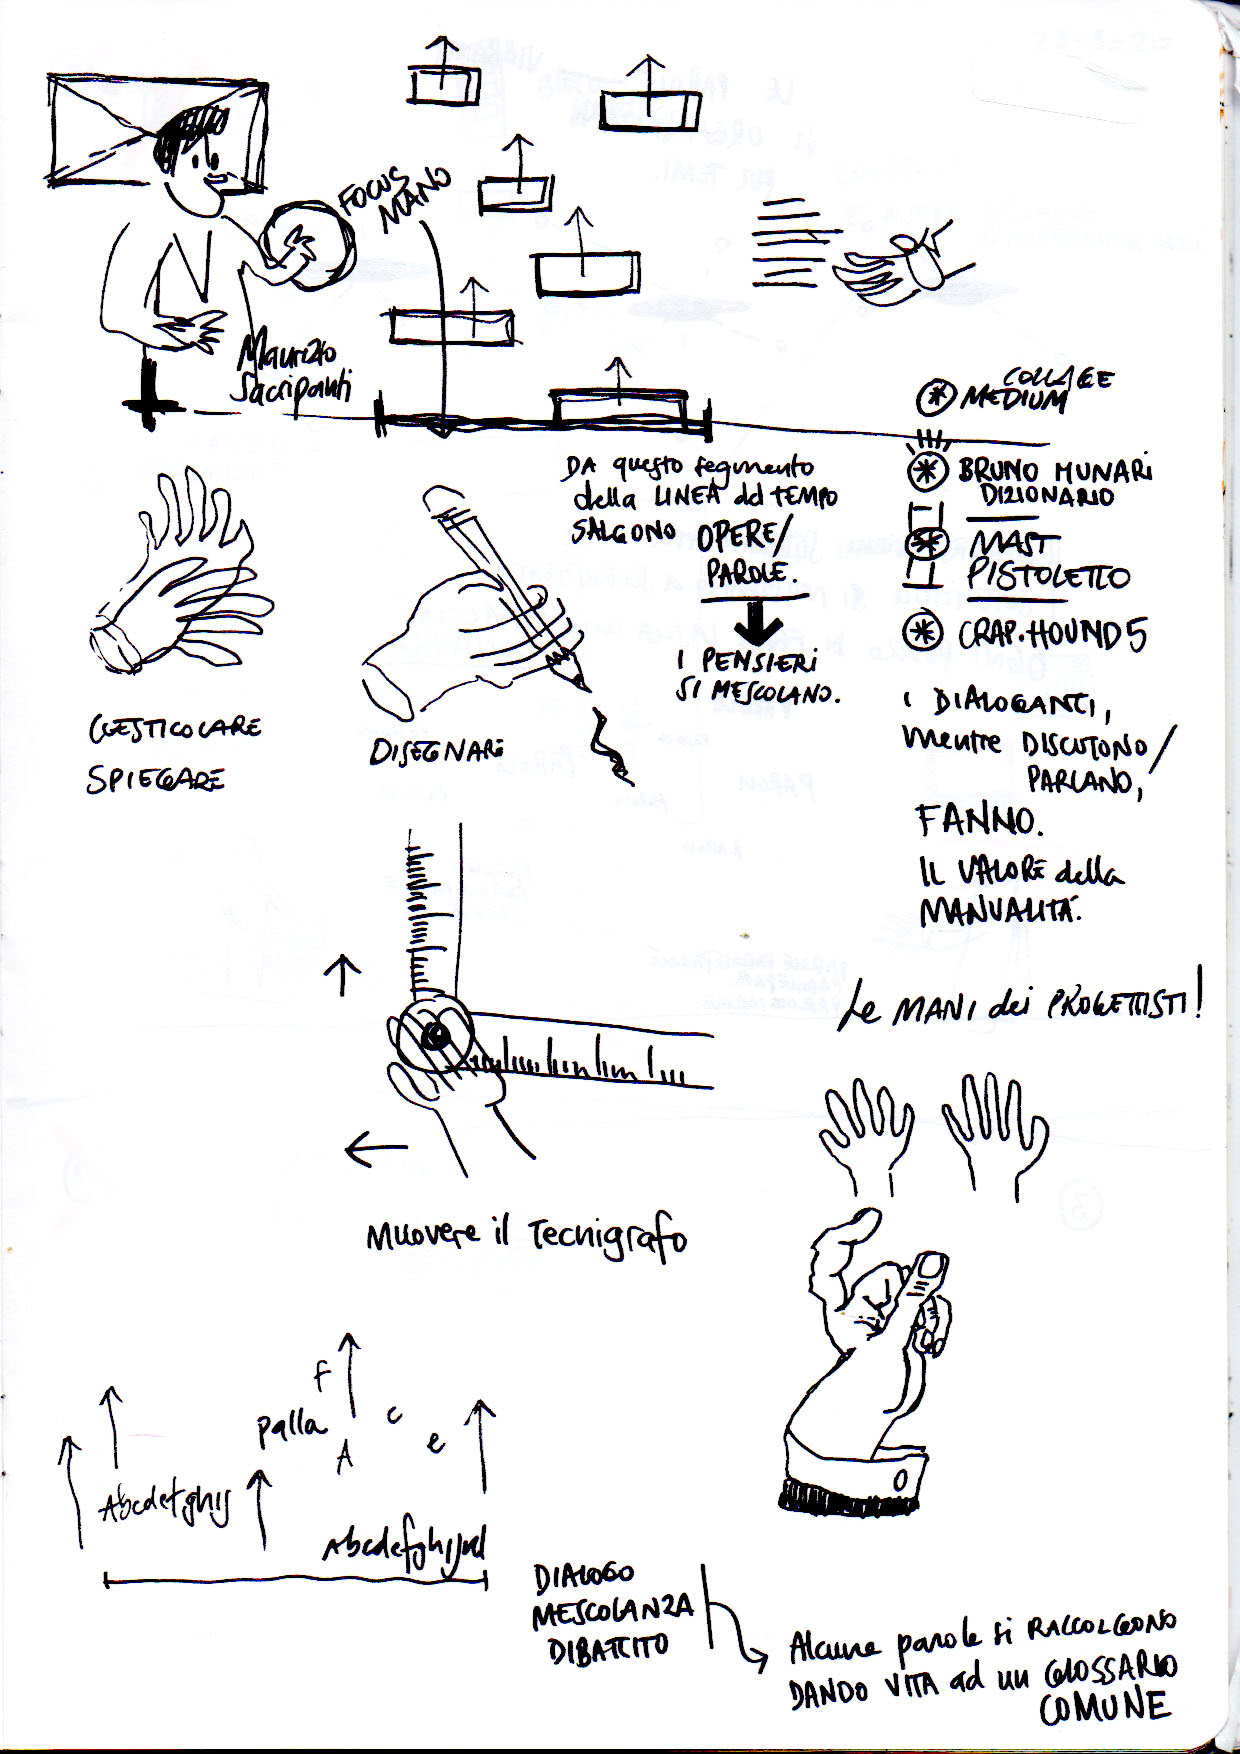 FOCUS
MANO
Maurizio
Sacripanti
COLLAGE
MEDIUM
BRUNO MUNARI
DIZIONARIO
MAST
PISTOLETTO
CRAP.HOUND 5
DA questo segmento
della LINEA del TEMPO
SALGONO OPERE/
PAROLE.
I PENSIERI
SI MESCOLANO.
GESTICOLARE
SPIEGARE
DISEGNARE
I DIALOGANTI,
mentre DISCUTONO/
PARLANO,
FANNO.
IL VALORE della
MANUALITÀ.
Le MANI dei PROGETTISTI!
MUOVERE il Tecnigrafo
F
palla
c
A
e
Abcdefghij
Abcdefghijkl
DIALOGO
MESCOLANZA
DIBATTITO
Alcune parole si RACCOLGONO
DANDO VITA ad un GLOSSARIO
COMUNE